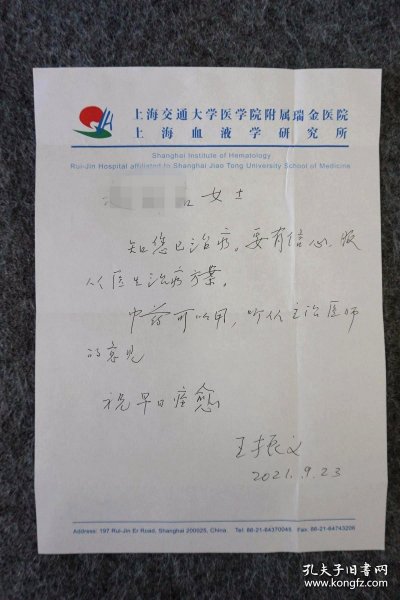 上海交通大学医学院附属瑞金医院
上海血液学研究所
Shanghai Institute of Hematology
Rui-Jin Hospital affiliated to Shanghai Jiao Tong University School of Medicine
女士
知您已治疗。要有信心，服
从医生治疗方案。
中药可以用，听从主治医师
的意见
祝早日痊愈
王振义
2021.9.23
Address: 197 Rui-Jin Er Road, Shanghai 200025, China. Tel: 86-21-64370045 Fax: 86-21-64743206
孔夫子旧书网
www.kongfz.com